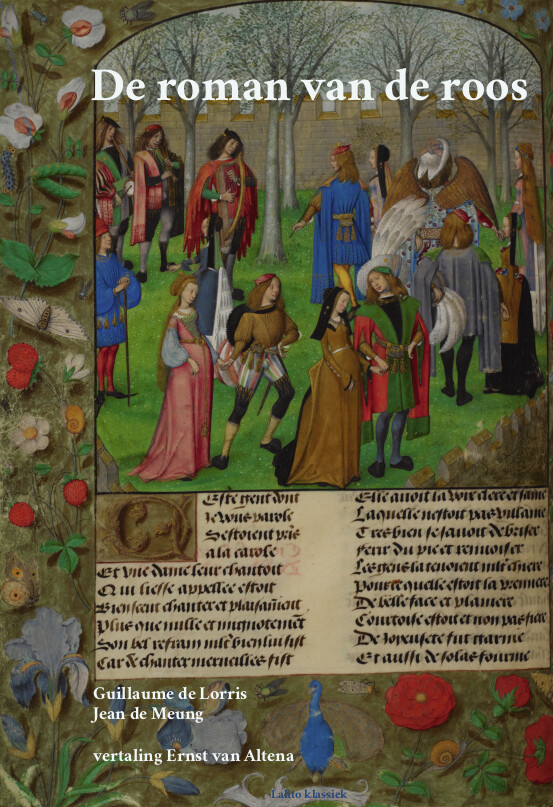 De roman van de roos
Ceste gent dont
je vous parole
Sestoient pris
a la carole
Et une dame leur chantoit
Qui liesse appellee estoit
Bien seut chanter et plaisamment
Plus que nulle et mignotement
Son bel refrain bien lui sist
Car de chanter merveilles fist
Elle avoit la voix clere et saine
Laquelle nestoit pas villaine
Tres bien se savoit debriser
Ferir du pie et renvoiser
Les gens la tenoient chiere
Pource quelle estoit la premiere
De belle face et planiere
Courtoise estoit et non pas fiere
De Joyeusete fut garnie
Et aussi de solas fournie
Guillaume de Lorris
Jean de Meung
vertaling Ernst van Altena
Lalito klassiek